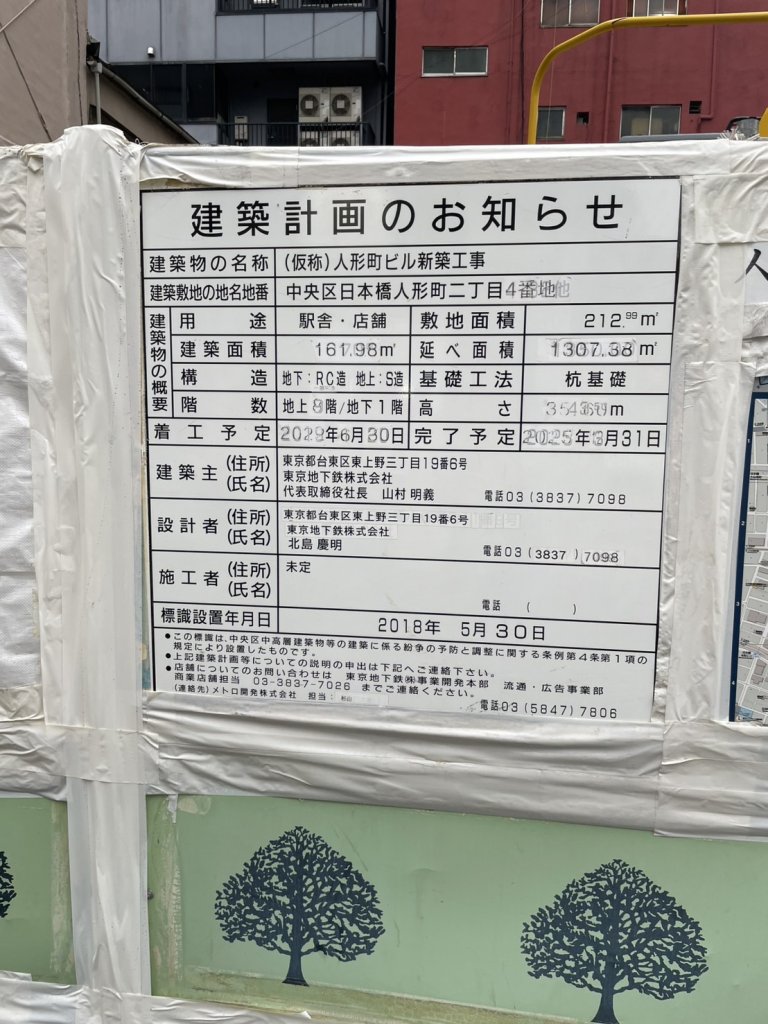 建築計画のお知らせ
建築物の名称 (仮称)人形町ビル新築工事
建築敷地の地名地番 中央区日本橋人形町二丁目4番地他
建築物の概要
用途 駅舎・店舗 敷地面積 212.99㎡
建築面積 161.98㎡ 延べ面積 1307.38㎡
構造 地下:RC造 地上:S造 基礎工法 杭基礎
階数 地上 階/地下1階 高さ m
着工予定 年6月30日 完了予定 年 月31日
建築主 (住所) 東京都台東区東上野三丁目19番6号
(氏名) 東京地下鉄株式会社
代表取締役社長 山村 明義 電話03(3837)7098
設計者 (住所) 東京都台東区東上野三丁目19番6号
(氏名) 東京地下鉄株式会社
北島 慶明 電話03(3837)7098
施工者 (住所) 未定
(氏名)
電話 ( )
標識設置年月日 2018年 5月 30日
●この標識は、中央区中高層建築物等の建築に係る紛争の予防と調整に関する条例第4条第1項の
規定により設置したものです。
●上記建築計画等についての説明の申出は下記へご連絡下さい。
●店舗についてのお問い合わせは 東京地下鉄㈱事業開発本部 流通・広告事業部
商業店舗担当 03-3837-7026 までご連絡ください。
(連絡先)メトロ開発株式会社 担当: 電話03(5847)7806
人